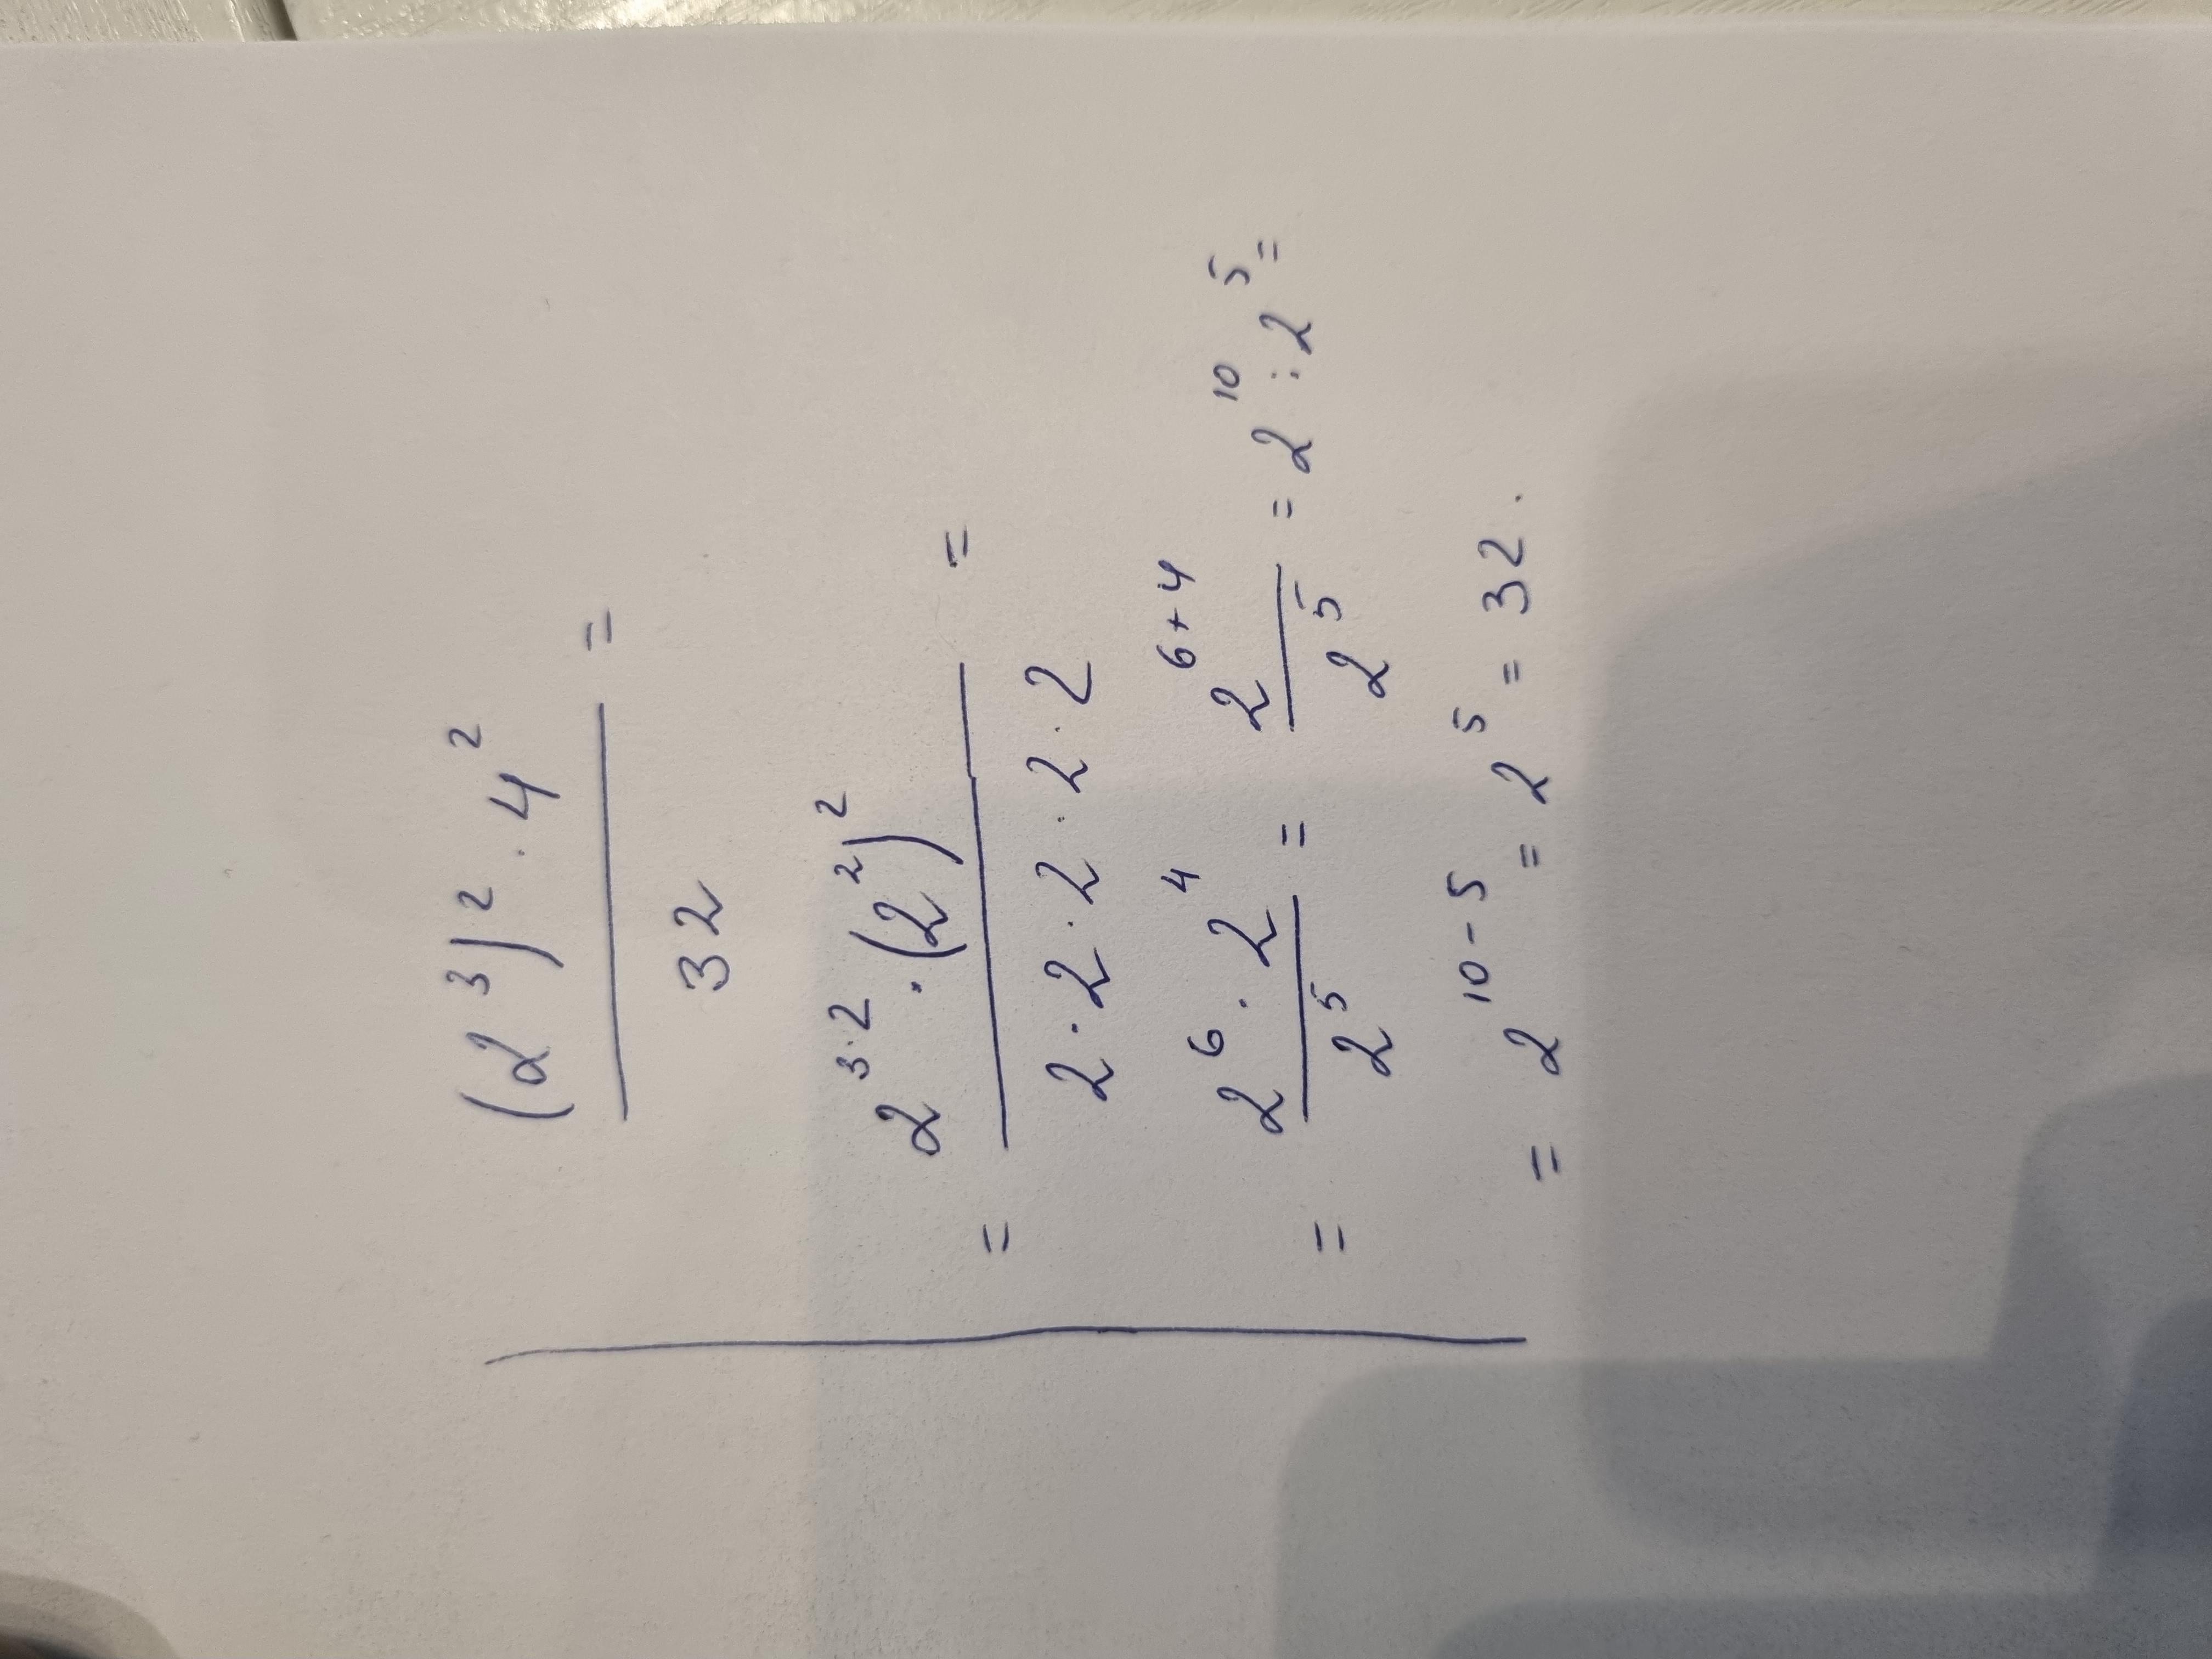 (2³)² · 4²
32 =
= 2³·² · (2²)²
2 · 2 · 2 · 2 · 2 =
= 2⁶ · 2⁴ / 2⁵ = 2⁶⁺⁴ / 2⁵ = 2¹⁰ : 2⁵ =
= 2¹⁰⁻⁵ = 2⁵ = 32.